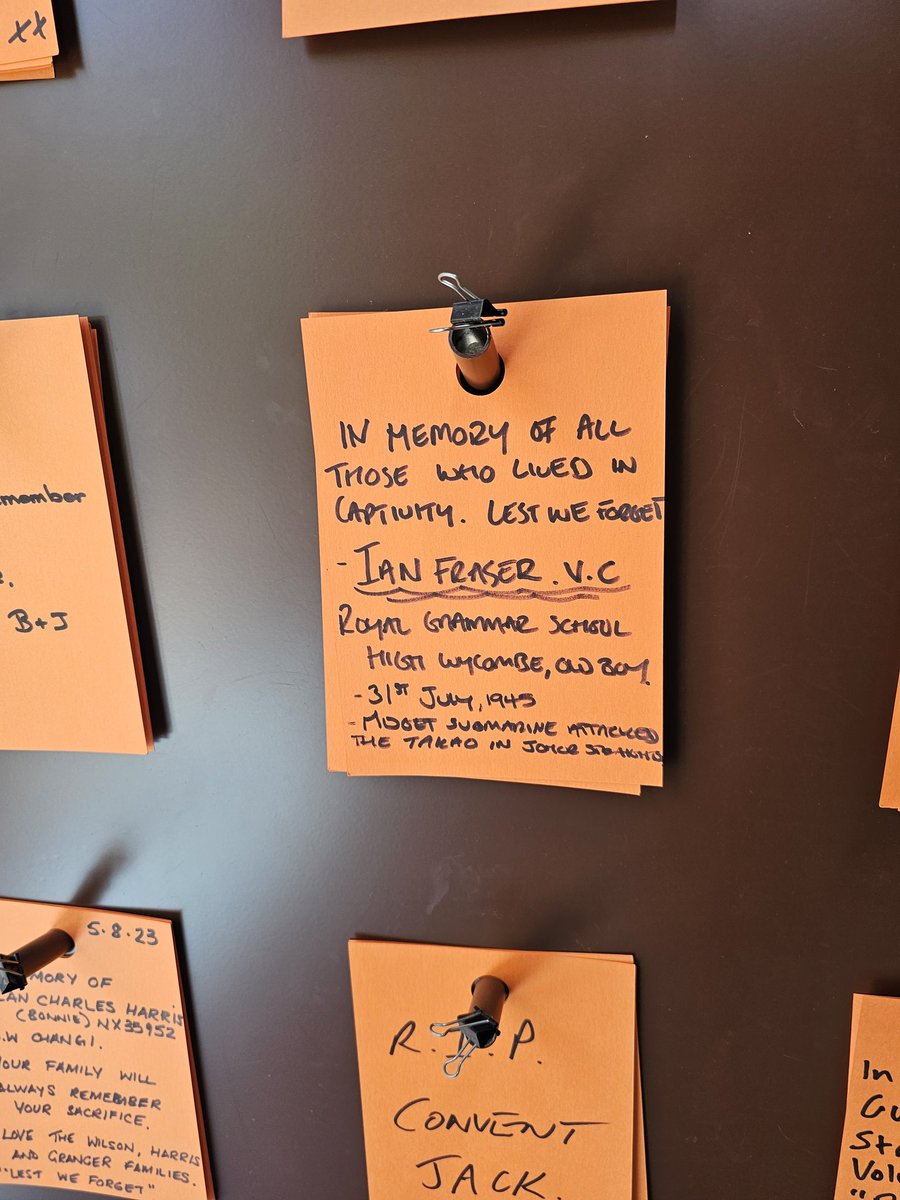 xx
IN MEMORY OF ALL
THOSE WHO LIVED IN
CAPTIVITY. LEST WE FORGET
- IAN FRASER. V.C
ROYAL GRAMMAR SCHOOL
HIGH WYCOMBE, OLD BOY.
- 31ST JULY, 1945
- MIDGET SUBMARINE ATTACKED
THE TAKAO IN JOHOR STRAIGHTS
member
B+J
5.8.23
MORY OF
LAN CHARLES HARRIS
(BONNIE) NX35952
.W CHANGI.
YOUR FAMILY WILL
ALWAYS REMEMBER
YOUR SACRIFICE.
LOVE THE WILSON, HARRIS
AND GRANGER FAMILIES.
"LEST WE FORGET"
R.I.P.
CONVENT
JACK.
In
Gu
Sta
Volu